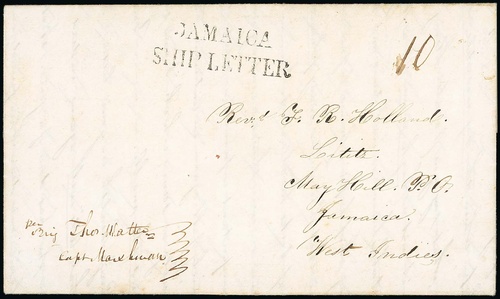 JAMAICA
SHIP LETTER
10
Revd. F. R. Holland.
Lititz.
May Hill. P.O.
Jamaica.
West Indies.
per
Brig Thos. Watter
Capt. Marshman